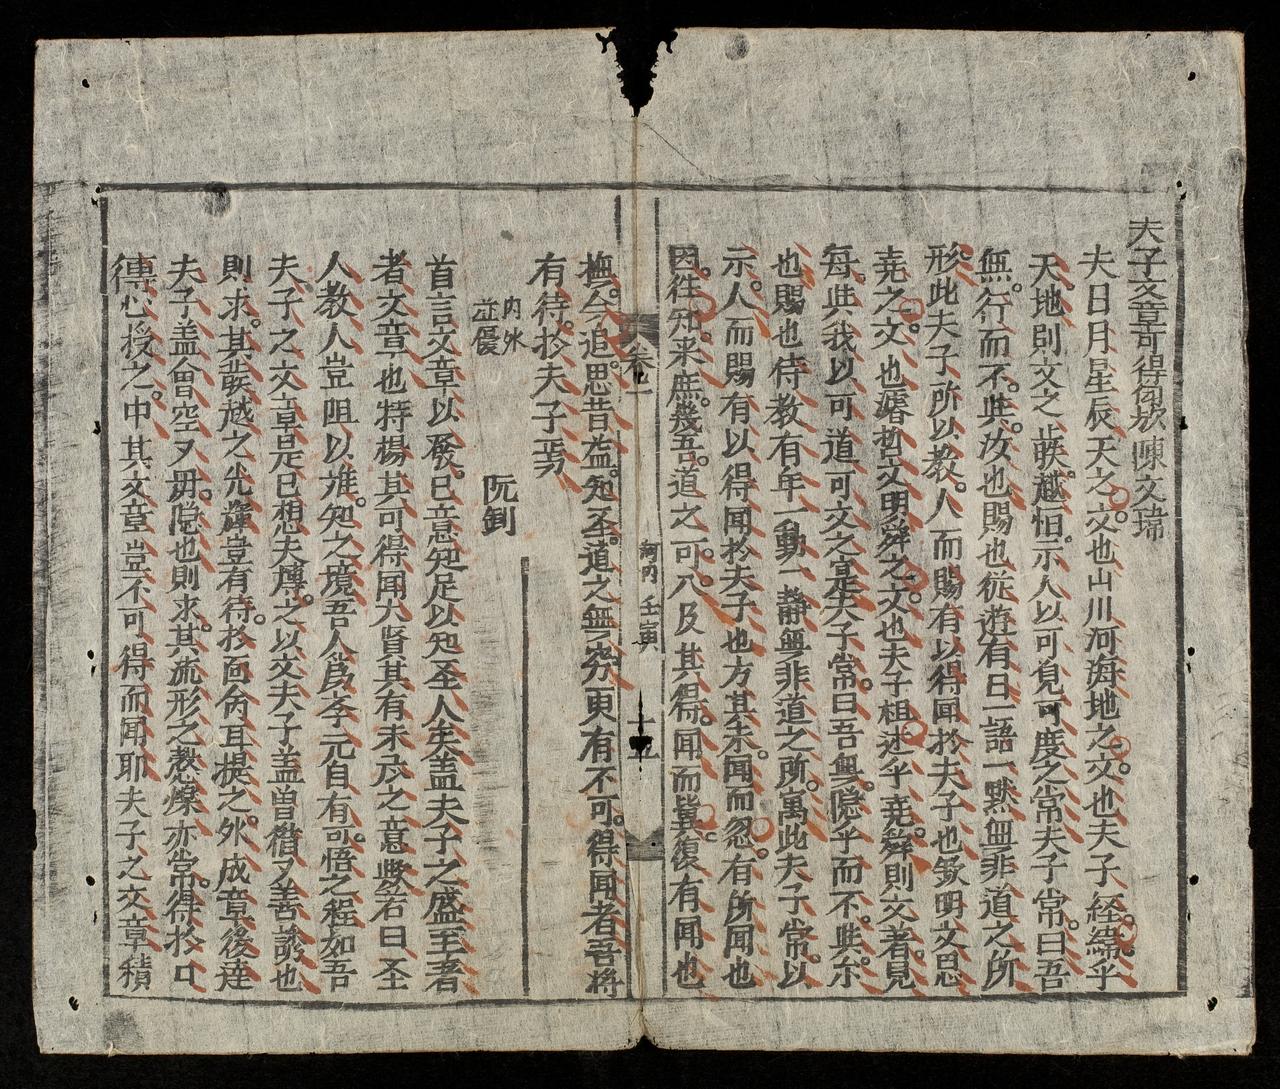 夫子文章可得聞欤 陳文瑞
夫日月星辰天之文也山川河海地之文也夫子経緯乎
天地則文之 越怛示人以可見可度之常夫子常曰吾
無行而不與汝也賜也従遊有日一語一黙無非道之所
形此夫子所以教人而賜有以得聞於夫子也欽明文思
堯之文也濬哲文明舜之文也夫子祖述乎堯舜則文者見
每與我以可道可文之寔夫子常曰吾無隱乎而不與尓
也賜也侍教有年一動一静無非道之所寓此夫子常以
示人而賜有以得聞於夫子也方其未聞而忽有所聞也
因往知来庶幾吾道之可 及其得聞而冀復有聞也
卷一
河内 壬寅
十五
撫今追思昔 知圣道之無窮更有不可得聞者吾将
有待於夫子焉
内外
並優
阮釗
首言文章以發已意知足以知圣人矣盖夫子之盛至著
者文章也特楊其可得聞大賢其有未及之意與若曰圣
人教人豈阻以难知之境吾人爲李元自有可悟之程如吾
夫子之文章是已想夫博之以文夫子盖曽 又善誘也
則求其 越之光輝豈有待於面命耳提之外成章後達
夫子盖曾空又毋隐也則求其流形之 亦常得於口
傳心授之中其文章豈不可得而聞耶夫子之文章積